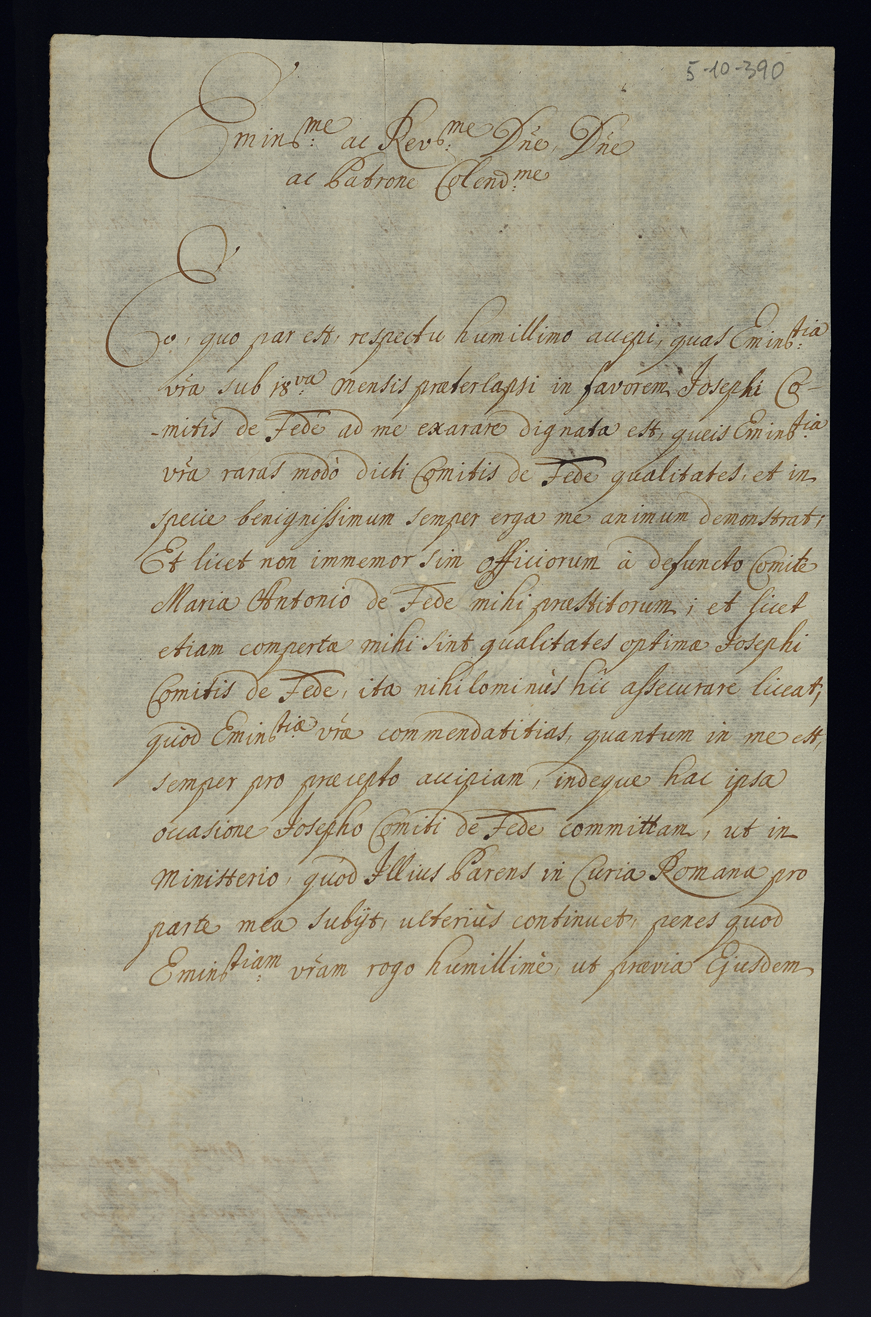 5-10-390
Emin̅s:me ac Revs:me Dn̄e, Dn̄e
ac Patrone Colend:me
Eo, quo par est, respectu humillimo accepi, quas Emins:tia
vr̃a sub 18va mensis præterlapsi in favorem Josephi Co-
-mitis de Fede ad me exarare dignata est, queis Emins:tia
vr̃a raras modò dicti Comitis de Fede qualitates, et in
specie benignissimum semper erga me animum demonstrat;
Et licet non immemor sim officiorum à defuncto Comite
Maria Antonio de Fede mihi præstitorum; et licet
etiam compertæ mihi sint qualitates optimæ Josephi
Comitis de Fede, ita nihilominùs hìc assecurare liceat,
quòd Eminstiæ vr̃æ commendatitias, quantum in me est,
semper pro præcepto accipiam, indeque hac ipsa
occasione Josepho Comiti de Fede committam, ut in
Ministerio, quod Illius Parens in Curia Romana pro
parte mea subijt, ulteriùs continuet, penes quod
Emins:tiam vr̃am rogo humillimè, ut prævia Ejusdem